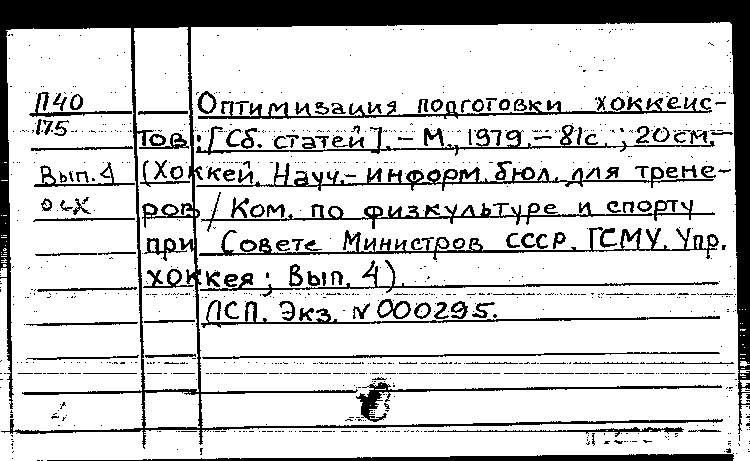 П40
175
Вып. 4
осх
Оптимизация подготовки хоккеис-
тов: [Сб. статей]. – М., 1979. – 81с.; 20см. –
(Хоккей. Науч.- информ. бюл. для трене-
ров / Ком. по физкультуре и спорту
при Совете Министров СССР. ГСМУ. Упр.
хоккея; Вып. 4).
ДСП. Экз. N 000295.
4